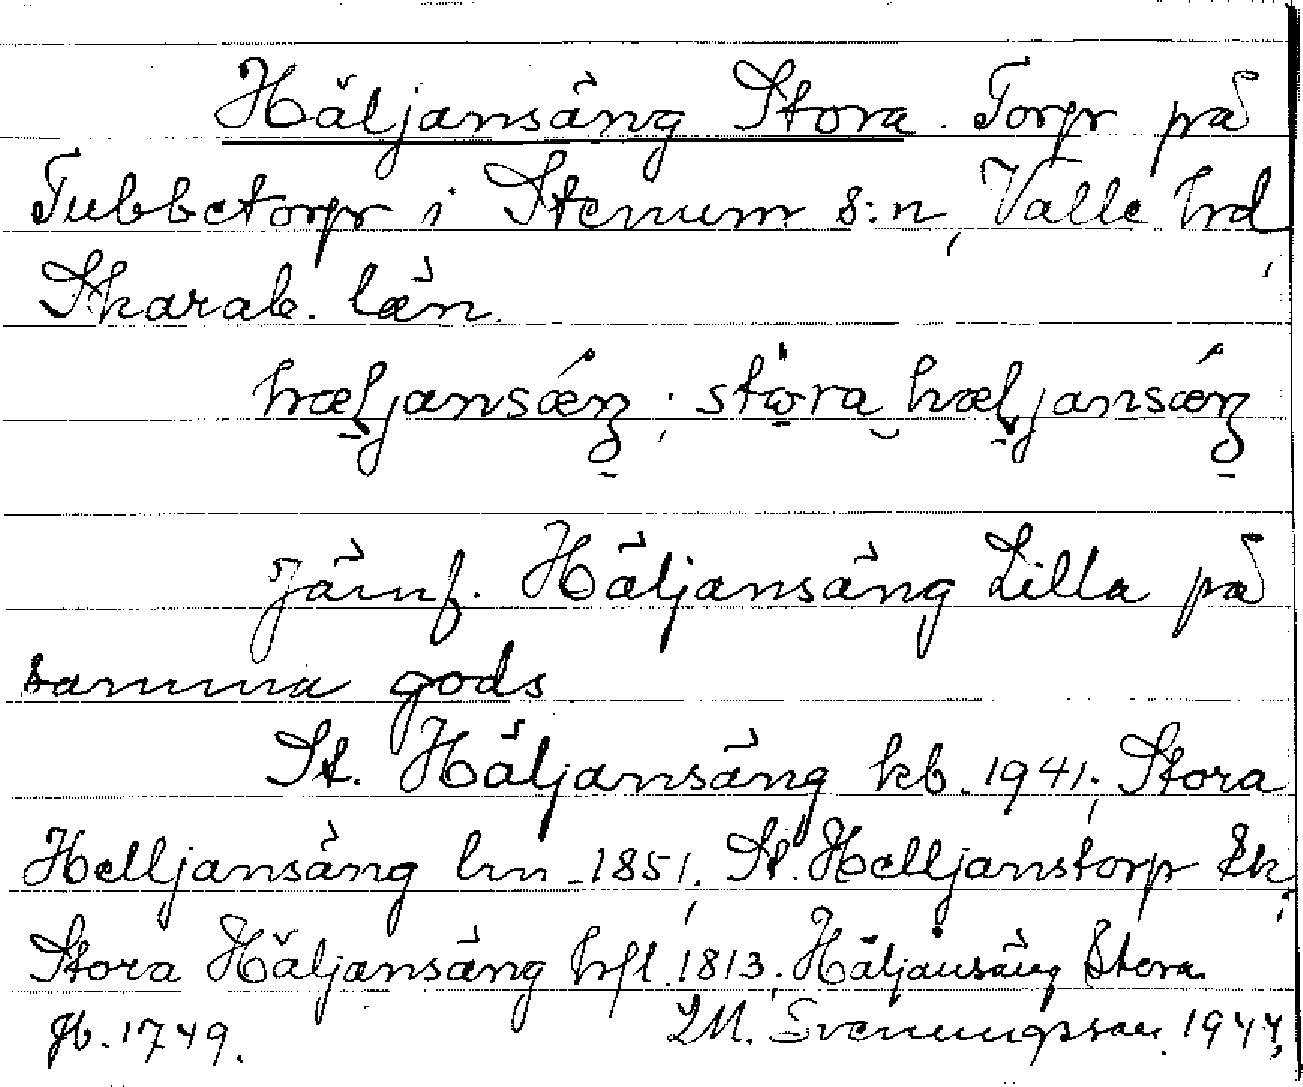 Häljansäng Stora. Torp på
Tubbetorp i Stenum s:n, Valle hrd,
Skarab. län.
hæljansǽŋ; stora hæljansǽŋ
Jämf. Häljansäng Lilla på
samma gods
St. Häljansäng kb. 1941; Stora
Helljansäng hn 1851; St. Helljanstorp Ek;
Stora Häljansäng hfl. 1813; Häljansäng Stora
jb. 1749. Svenungsson 1944;